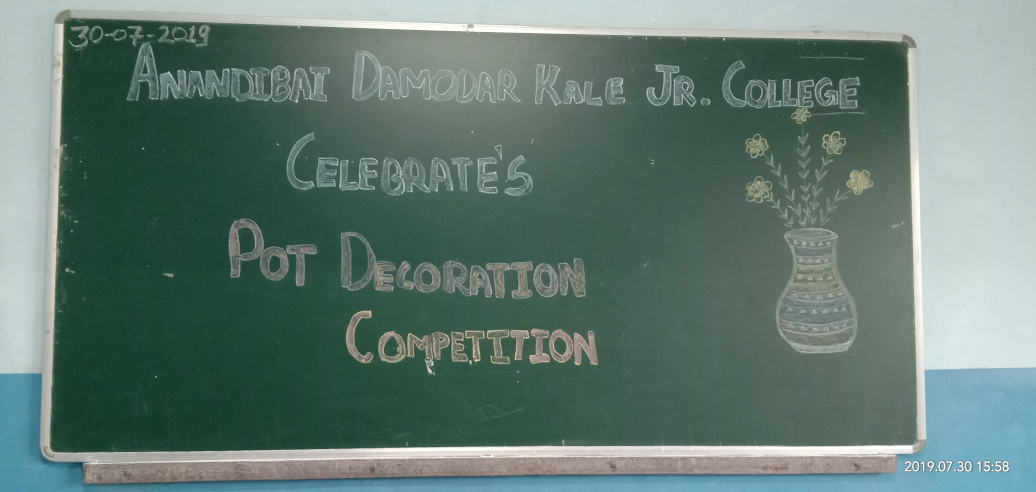 30-07-2019
ANANDIBAI DAMODAR KALE JR. COLLEGE
CELEBRATE'S
POT DECORATION
COMPETITION
2019.07.30 15:58